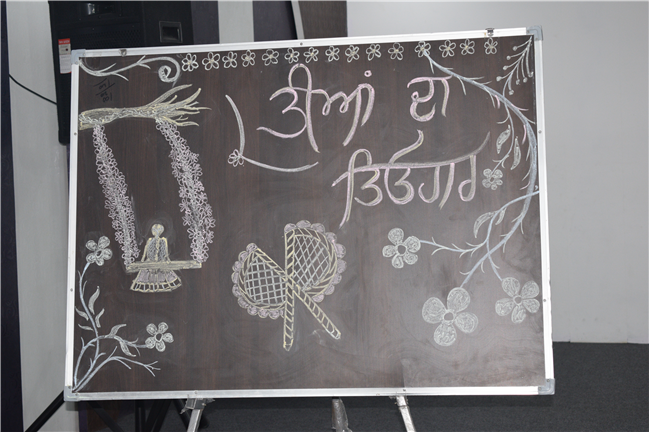 ਤੀਆਂ ਦਾ
ਤਿਓਹਾਰ